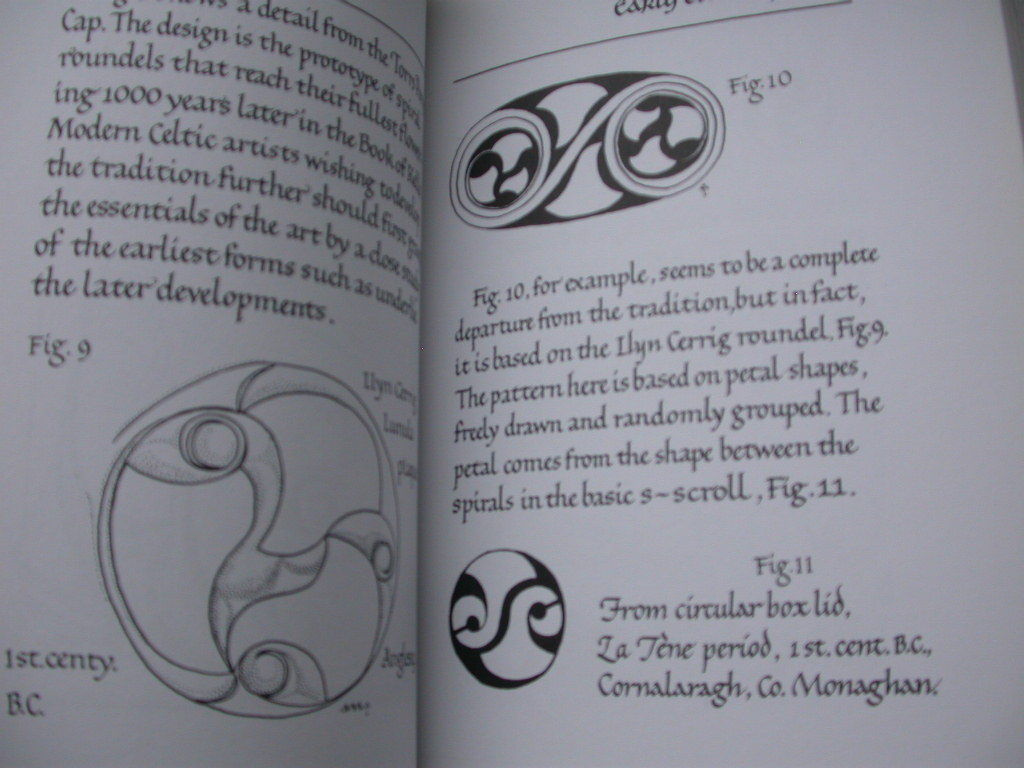 a detail from the Torrs
Cap. The design is the prototype of spiral
roundels that reach their fullest flower-
ing 1000 years later in the Book of Kells.
Modern Celtic artists wishing to develop
the tradition further should first
the essentials of the art by a close study
of the earliest forms such as underlie
the later developments.
Fig. 9
Llyn Cerrig
Lunula
plaque
Anglesey
1st. centy.
B.C.
early
Fig. 10
Fig. 10, for example, seems to be a complete
departure from the tradition, but in fact,
it is based on the Llyn Cerrig roundel, Fig. 9.
The pattern here is based on petal shapes,
freely drawn and randomly grouped. The
petal comes from the shape between the
spirals in the basic s-scroll, Fig. 11.
Fig. 11
From circular box lid,
La Tène period, 1st. cent. B.C.,
Cornalaragh, Co. Monaghan.